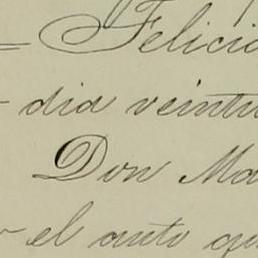 Felicia
dia veintiu
Don Ma
el auto qu